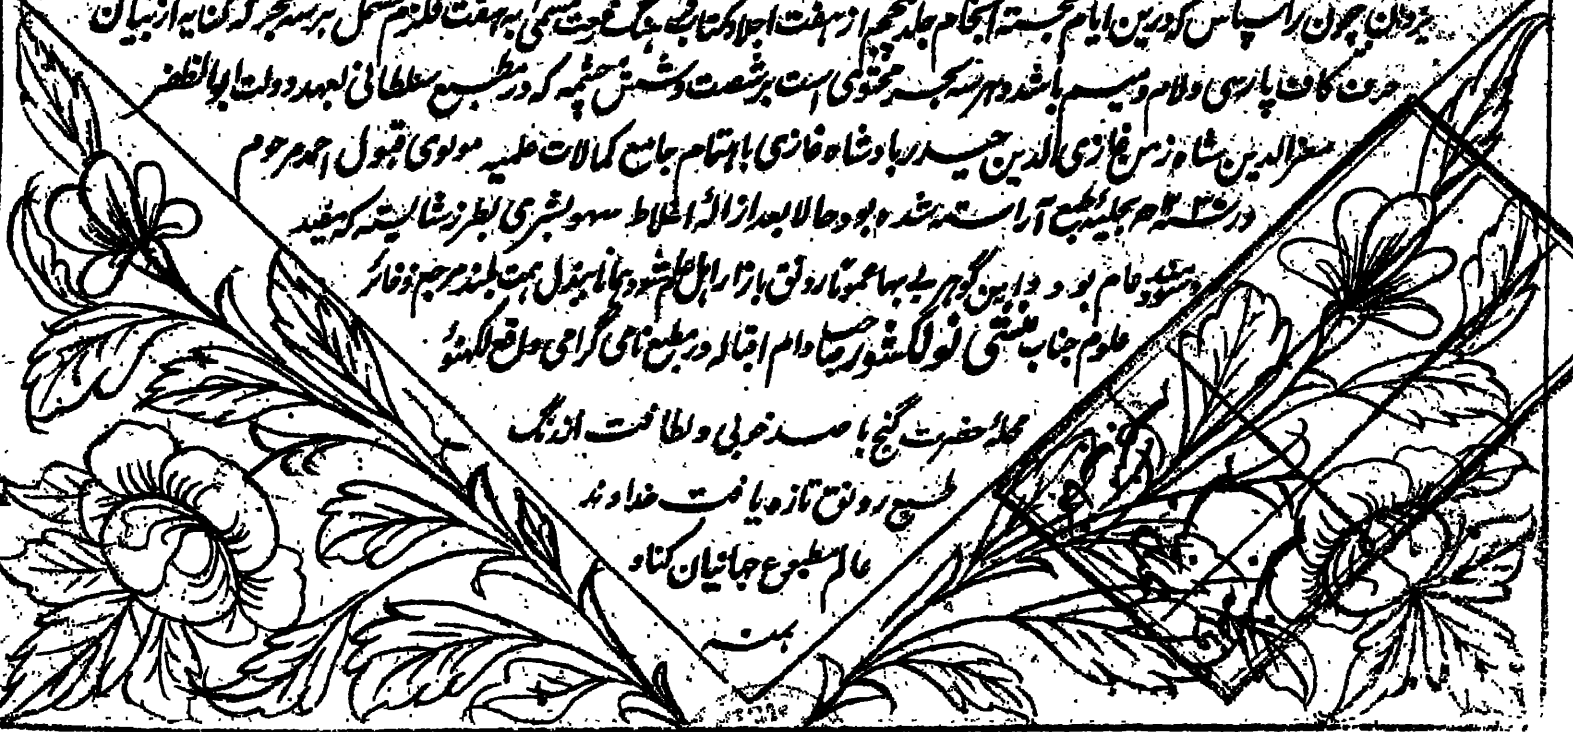 یزدان چون را سپاس که درین ایام خجسته انجام جلد پنجم از هفت اجلاد کتاب فرهنگ مسمی به هفت قلزم مشتمل بر سه بحر که کنایه از بیان
حرف کاف پارسی و لام و میم باشد و هر سه بحر محتوی است بر شصت و شش چشمه که در مطبع سلطانی لعهد دولت ابوالظفر
معزالدین شاه زمن غازی الدین حیدر بادشاه غازی باهتمام جامع کمالات علمیه مولوی قبول احمد مرحوم
در بحلیهٔ طبع آراسته شده بود حالا بعد ازالهٔ اغلاط سهو بشری بطرز شایسته که مفید
خاص و عام بود و این گوهر بی بها عموماً رونق بازار اهل علم شود بانابذل همت بلند مرجع و فائز
علوم جناب منشی نولکشور صاحب دام اقباله در مطبع نامی گرامی واقع لکهنؤ
محلهٔ حضرت گنج با صد خوبی و لطافت اندنگ
طبع رونق تازه یافت خداوند
عالم مطبوع جهانیان کناد